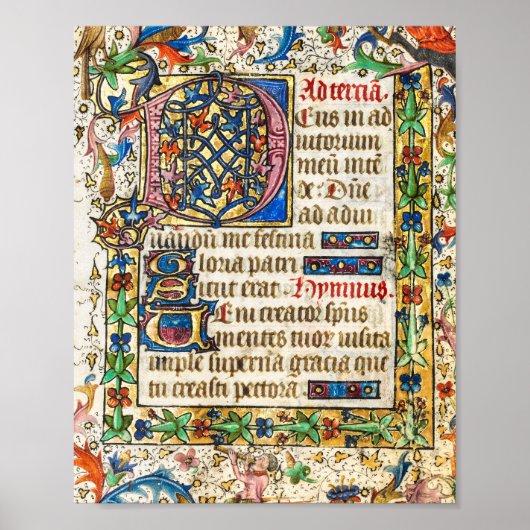 Ad terciā.
Eus in ad
iutorium
meū inte
de: Dñe
ad adiu
uandū me festina
Gloria patri
Sicut erat Hymnus.
Veni creator spūs
mentes tuor visita
imple superna gracia que
tu creasti pectora